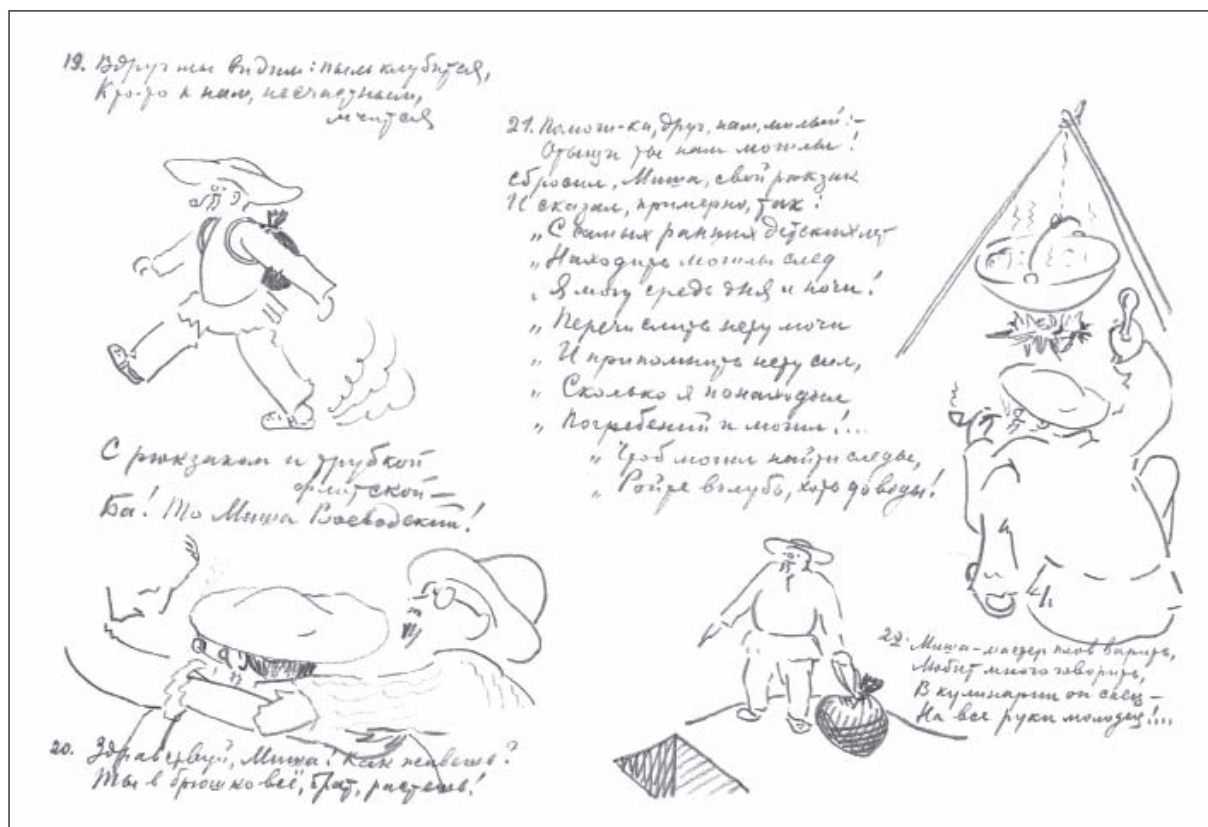 19. Вдруг мы видим: пыль клубится,
Кто-то к нам, несчастным,
мчится
С рюкзаком и трубкой
флотской –
Ба! То Миша Воеводский!
20. Здравствуй, Миша! Как живёшь?
Ты в брюшко всё, брат, растёшь!
21. Помоги-ка, друг, нам, милый: –
Отыщи ты нам могилы!
Сбросил, Миша, свой рюкзак
И сказал, примерно, так:
„ С самых ранних детских лет
„ Находить могилы след
„ Я могу средь дня и ночи!
„ Перечислить нету мочи
„ И припомнить нету сил,
„ Сколько я понаходил
„ Погребений и могил!...
„ Чтоб могил найти следы,
„ Ройте вглубь, хоть до воды!
22. Миша – мастер плов варить,
Любит много говорить,
В кулинарии он спец –
На все руки молодец!...